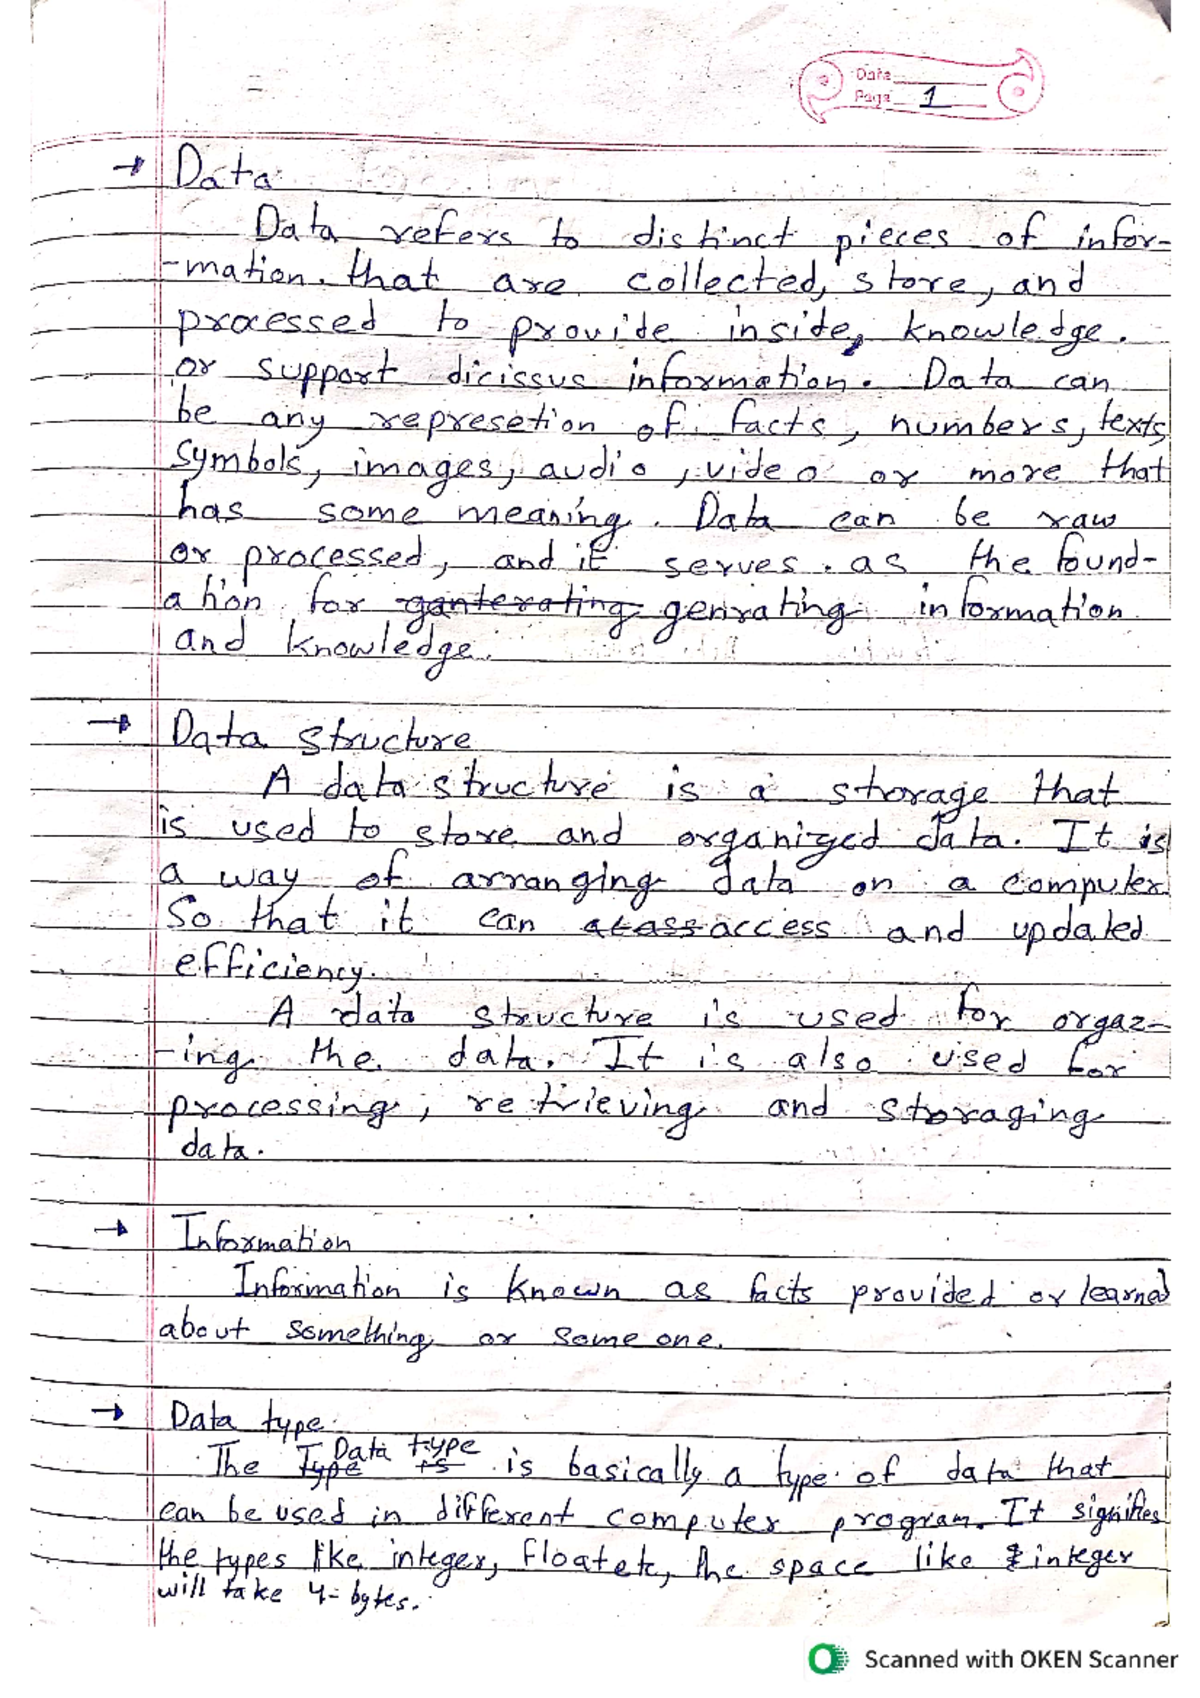 Date
Page 1
→ Data
Data refers to distinct pieces of infor-
-mation. that are collected, store, and
processed to provide inside, knowledge.
or support dicissus information. Data can
be any represetion of facts, numbers, texts
Symbols, images, audio, video or more that
has some meaning. Data can be raw
or processed, and it serves as the found-
ation for ganterating genrating information
and knowledge.
→ Data structure
A data structure is a storage that
is used to store and organized data. It is
a way of arranging data on a computer
So that it can access and updated
efficiency.
A data structure is used for orgaz-
-ing the data. It is also used for
processing, retrieving and storaging
data.
→ Information
Information is known as facts provided or learned
about something or someone.
→ Data type
The Type Data type is is basically a type of data that
can be used in different computer program. It signifies
the types like integer, float etc, the space like integer
will take 4-bytes.
Scanned with OKEN Scanner